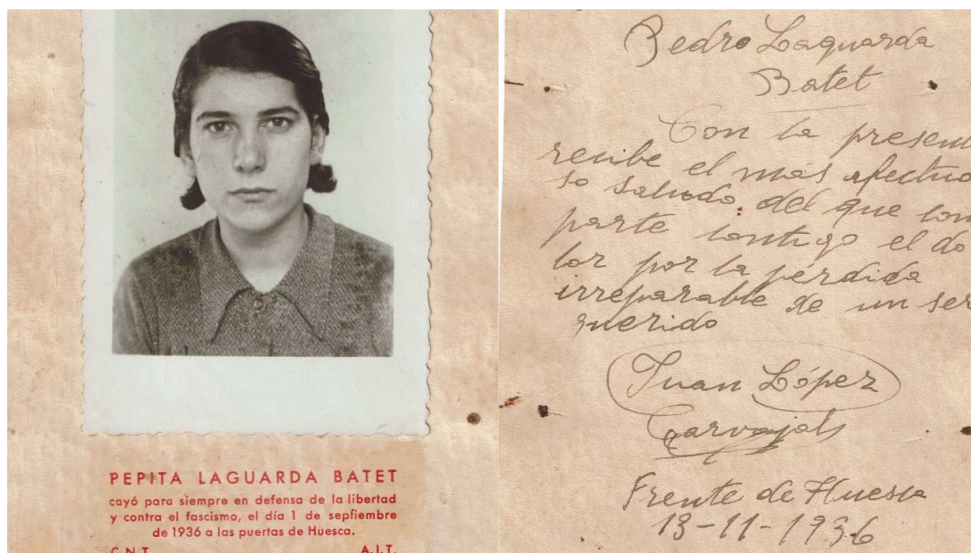 PEPITA LAGUARDA BATET
cayó para siempre en defensa de la libertad
y contra el fascismo, el día 1 de septiembre
de 1936 a las puertas de Huesca.
C.N.T. A.I.T.
Pedro Laguarda
Batet
Con la presen
recibe el más afectuo
so saludo del que com
parte contigo el do
lor por la pérdida
irreparable de un ser
querido
Juan López
Carvajal
Frente de Huesca
13-11-1936